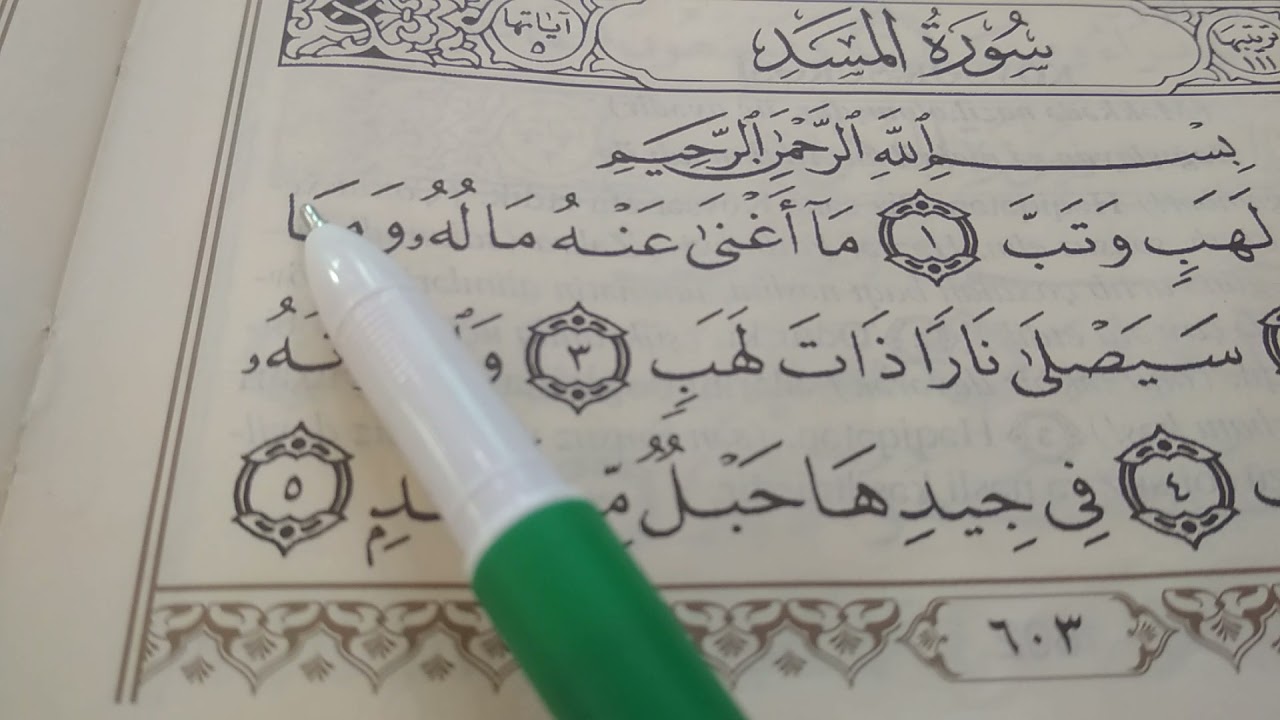 آياتها ٥
سُورَةُ المَسَدِ
ترتيبها ١١١
بِسْمِ ٱللَّهِ ٱلرَّحْمَٰنِ ٱلرَّحِيمِ
لَهَبٍ وَتَبَّ ١ مَآ أَغْنَىٰ عَنْهُ مَالُهُۥ وَمَا
سَيَصْلَىٰ نَارًا ذَاتَ لَهَبٍ ٣
٤ فِي جِيدِهَا حَبْلٌ ٥
٦٠٣